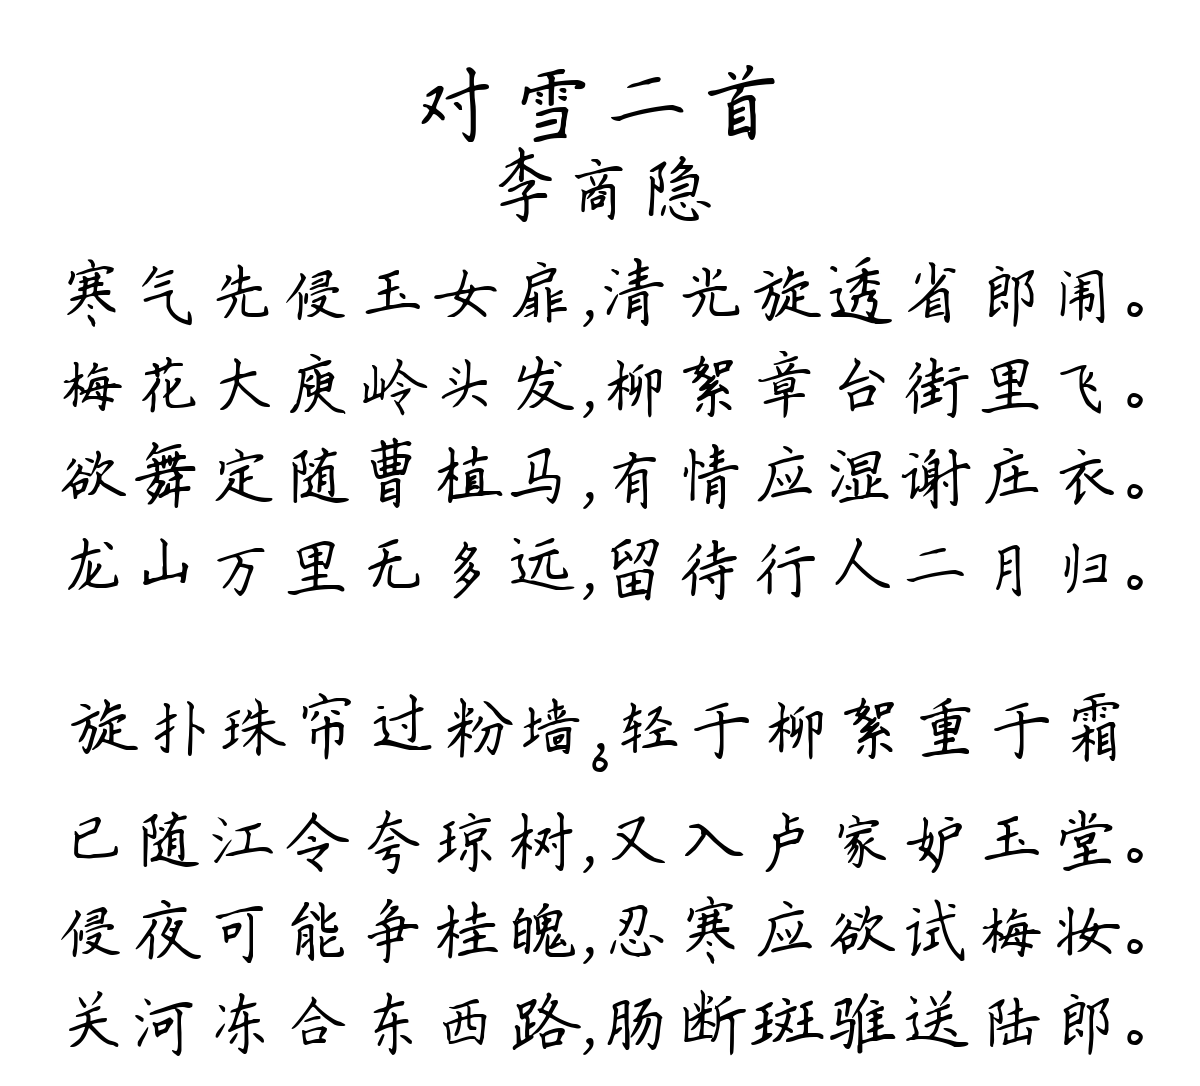 对雪二首
李商隐
寒气先侵玉女扉,清光旋透省郎闱。
梅花大庾岭头发,柳絮章台街里飞。
欲舞定随曹植马,有情应湿谢庄衣。
龙山万里无多远,留待行人二月归。
旋扑珠帘过粉墙,轻于柳絮重于霜
。
已随江令夸琼树,又入卢家妒玉堂。
侵夜可能争桂魄,忍寒应欲试梅妆。
关河冻合东西路,肠断斑骓送陆郎。